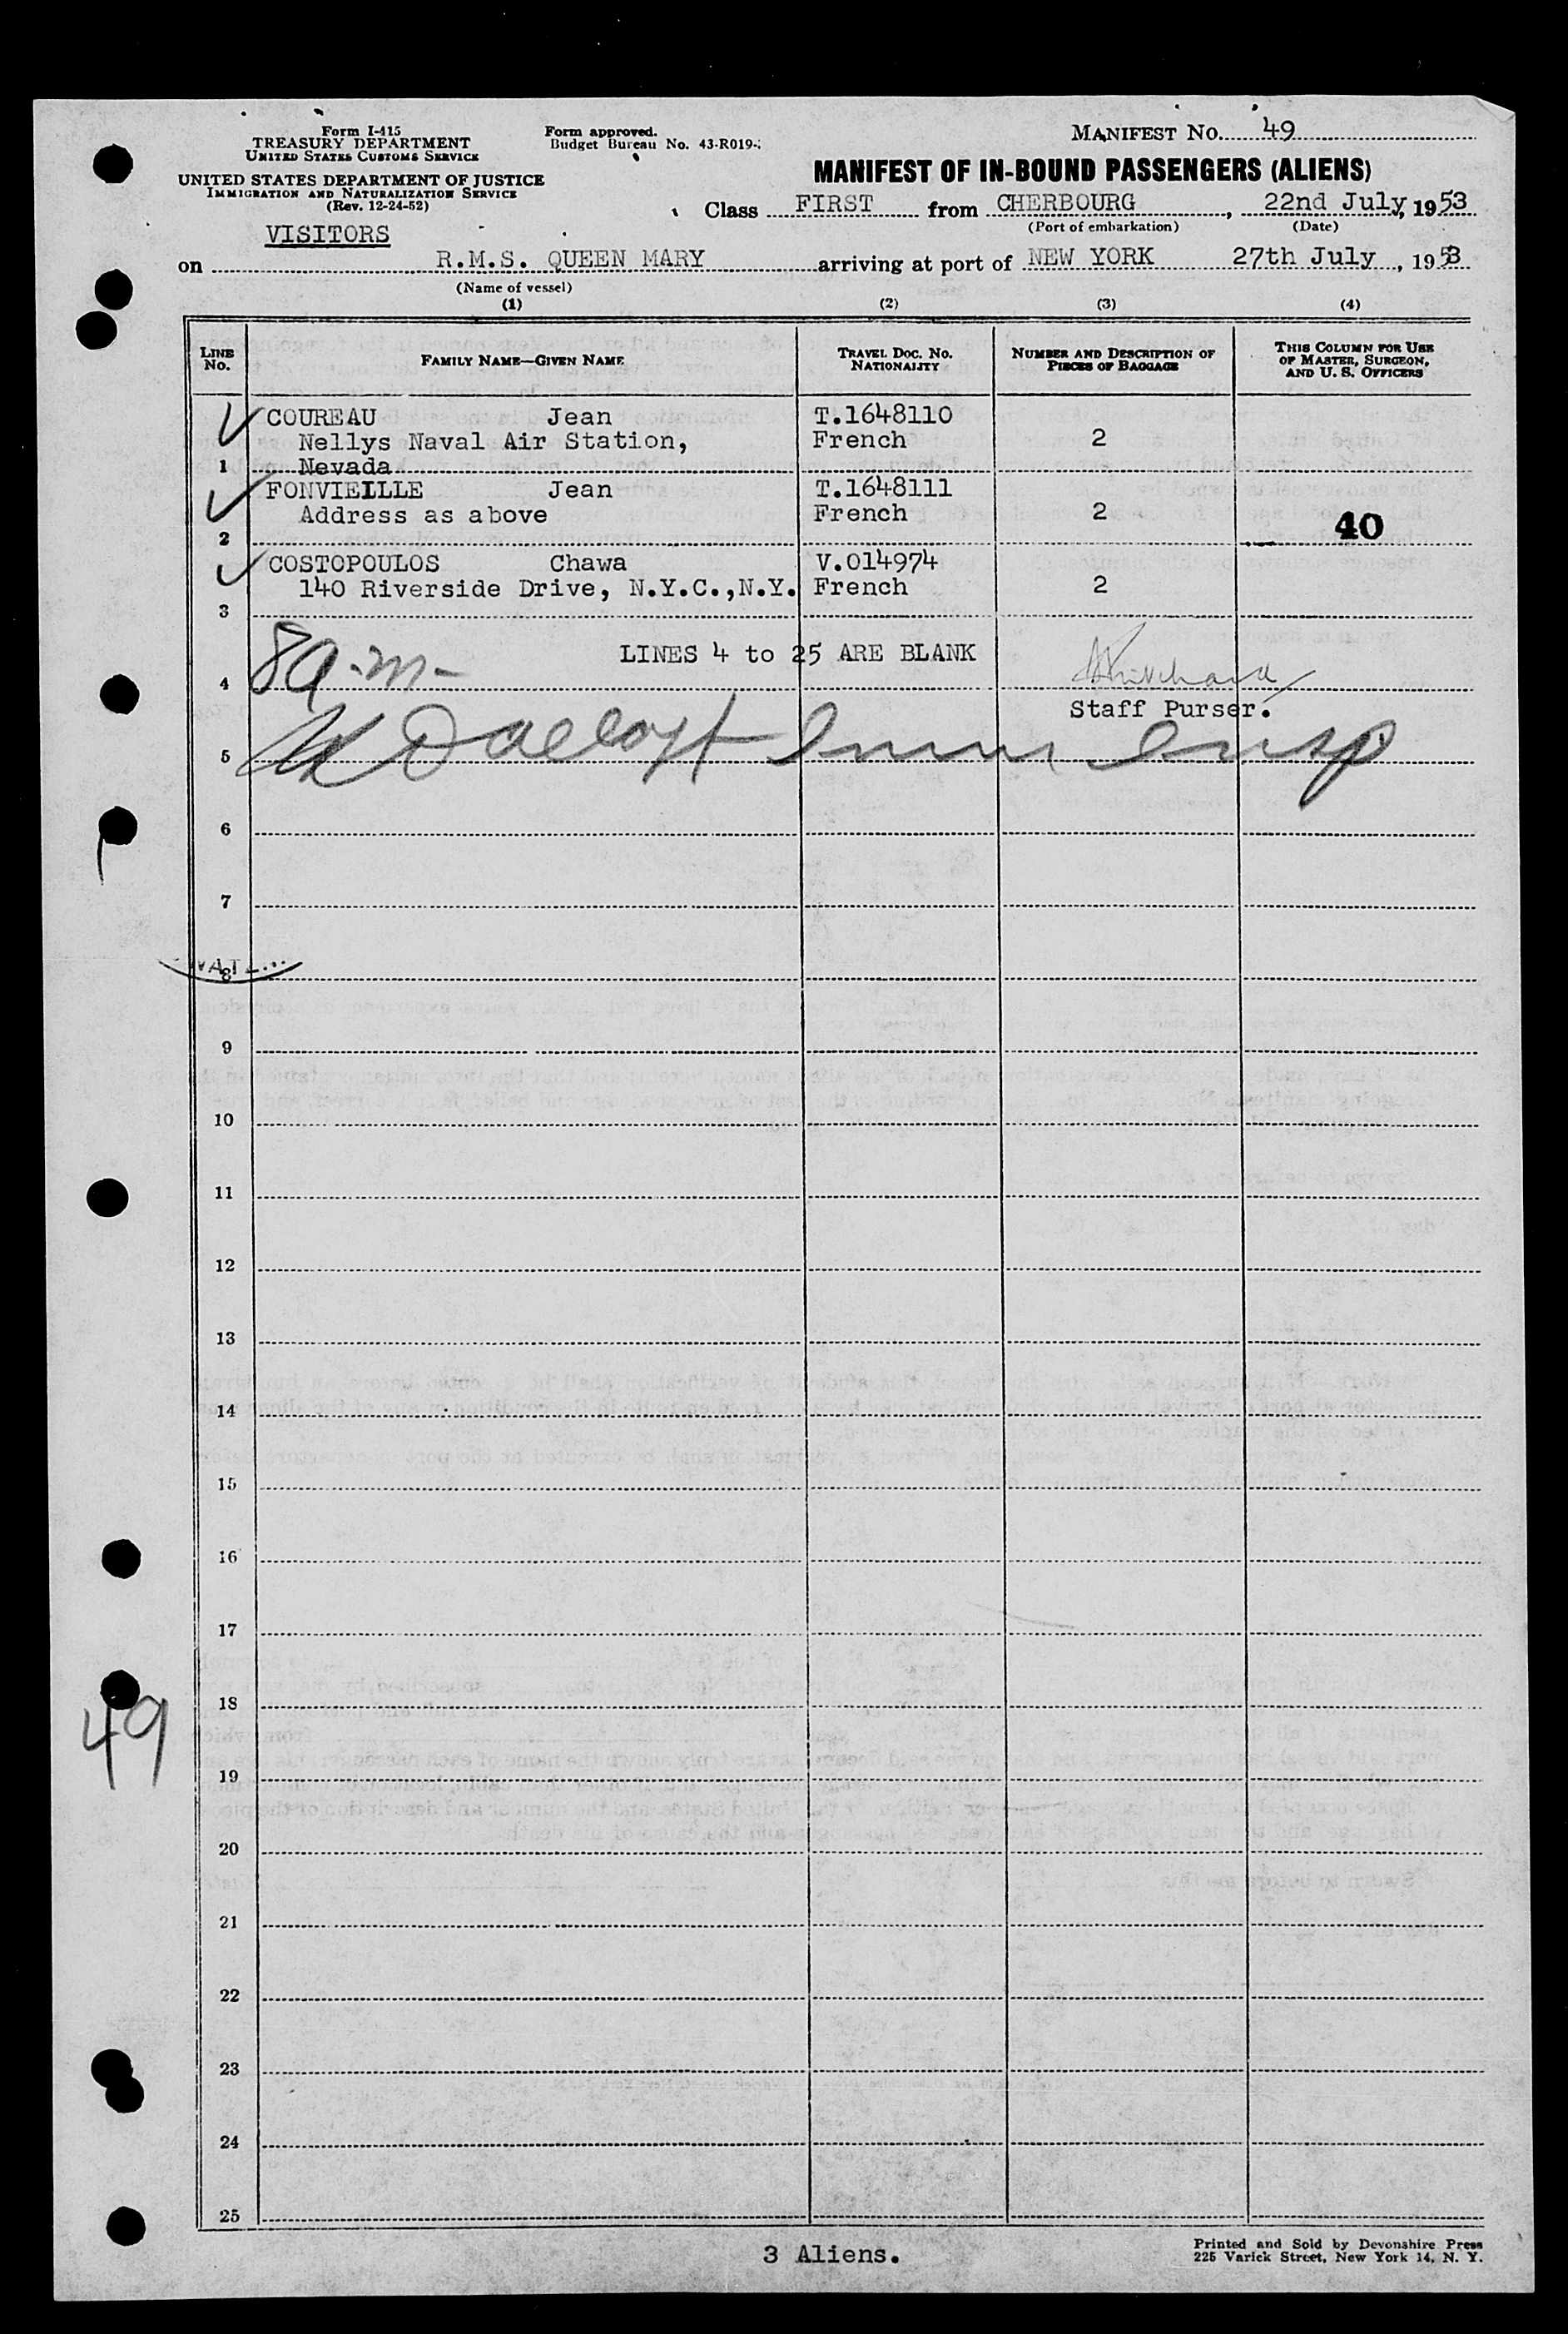 Form I-415
TREASURY DEPARTMENT
UNITED STATES CUSTOMS SERVICE
UNITED STATES DEPARTMENT OF JUSTICE
IMMIGRATION AND NATURALIZATION SERVICE
(Rev. 12-24-52)
Form approved.
Budget Bureau No. 43-R019-
MANIFEST No. 49
MANIFEST OF IN-BOUND PASSENGERS (ALIENS)
Class FIRST from CHERBOURG, 22nd July, 1953
(Port of embarkation) (Date)
VISITORS
on R.M.S. QUEEN MARY arriving at port of NEW YORK 27th July, 1953
(Name of vessel)
(1) (2) (3) (4)
LINE No. FAMILY NAME—GIVEN NAME TRAVEL DOC. NO. NATIONALITY NUMBER AND DESCRIPTION OF PIECES OF BAGGAGE THIS COLUMN FOR USE OF MASTER, SURGEON, AND U. S. OFFICERS
COUREAU Jean T.1648110
Nellys Naval Air Station, French 2
1 Nevada
FONVIEILLE Jean T.1648111
Address as above French 2 40
2
COSTOPOULOS Chawa V.014974
140 Riverside Drive, N.Y.C.,N.Y. French 2
3
8 a.m.
LINES 4 to 25 ARE BLANK
4
Staff Purser.
5 Imm Insp
6
7
8
9
10
11
12
13
14
15
16
17
18
49
19
20
21
22
23
24
25
3 Aliens.
Printed and Sold by Devonshire Press
225 Varick Street, New York 14, N. Y.